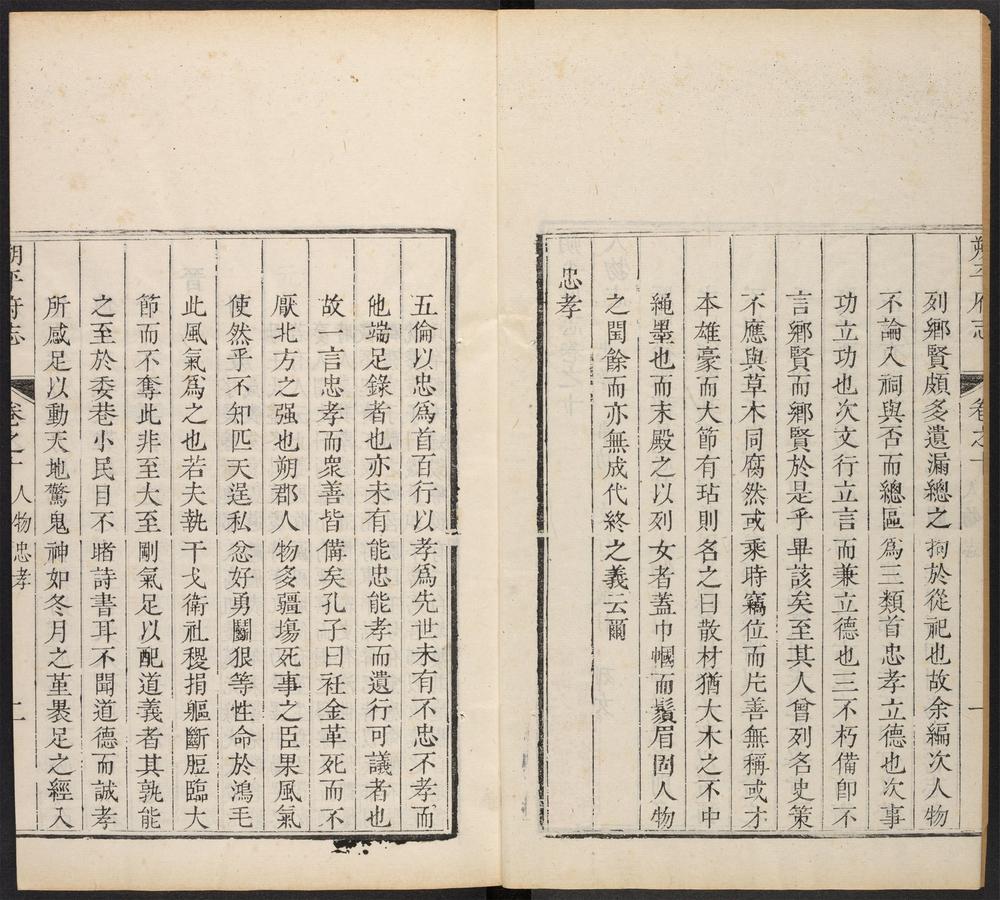 朔平府志
卷之十
一
列鄉賢頗多遺漏總之拘於從祀也故余編次人物
不論入祠與否而總區為三類首忠孝立德也次事
功立功也次文行立言而兼立德也三不朽備卽不
言鄉賢而鄉賢於是乎畢該矣至其人曾列名史策
不應與草木同腐然或乘時竊位而片善無稱或才
本雄豪而大節有玷則名之曰散材猶大木之不中
繩墨也而末殿之以列女者蓋巾幗而鬚眉固人物
之閏餘而亦無成代終之義云爾
忠孝
五倫以忠爲首百行以孝爲先世未有不忠不孝而
他端足錄者也亦未有能忠能孝而遺行可議者也
故一言忠孝而衆善皆備矣孔子曰衽金革死而不
厭北方之强也朔郡人物多疆塲死事之臣果風氣
使然乎不知匹夫逞私忿好勇鬭狠等性命於鴻毛
此風氣爲之也若夫執干戈衛社稷捐軀斷脰臨大
節而不奪此非至大至剛氣足以配道義者其孰能
之至於委巷小民目不睹詩書耳不聞道德而誠孝
所感足以動天地驚鬼神如冬月之堇㬥足之經入
朔平府志
卷之十
人物忠孝
二